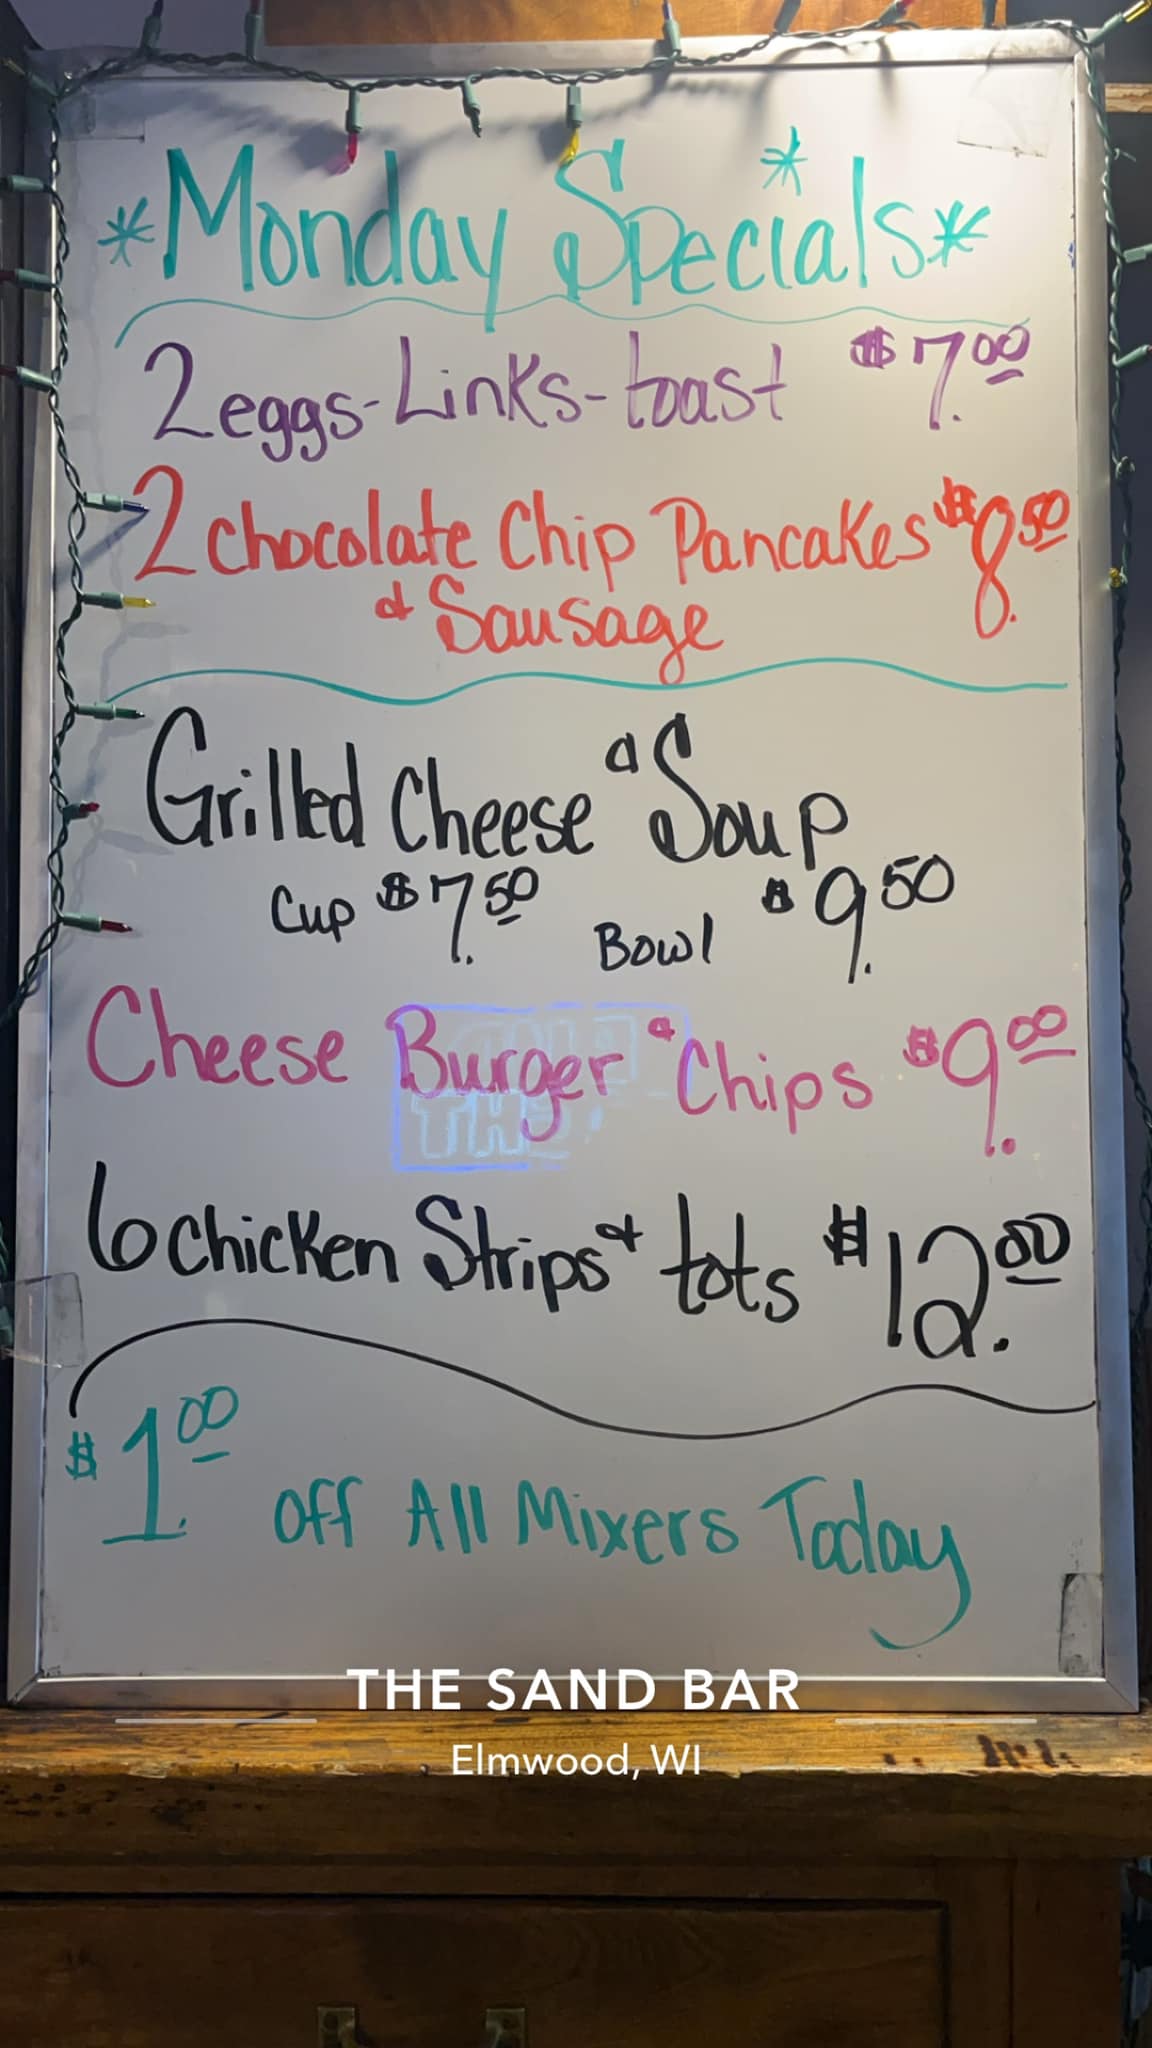 *Monday Specials*
2 eggs-Links-toast $7.00
2 chocolate Chip Pancakes $8.50
& Sausage
Grilled Cheese & Soup
Cup $7.50 Bowl $9.50
Cheese Burger & Chips $9.00
6 chicken Strips & tots $12.00
$1.00 off All Mixers Today
THE SAND BAR
Elmwood, WI